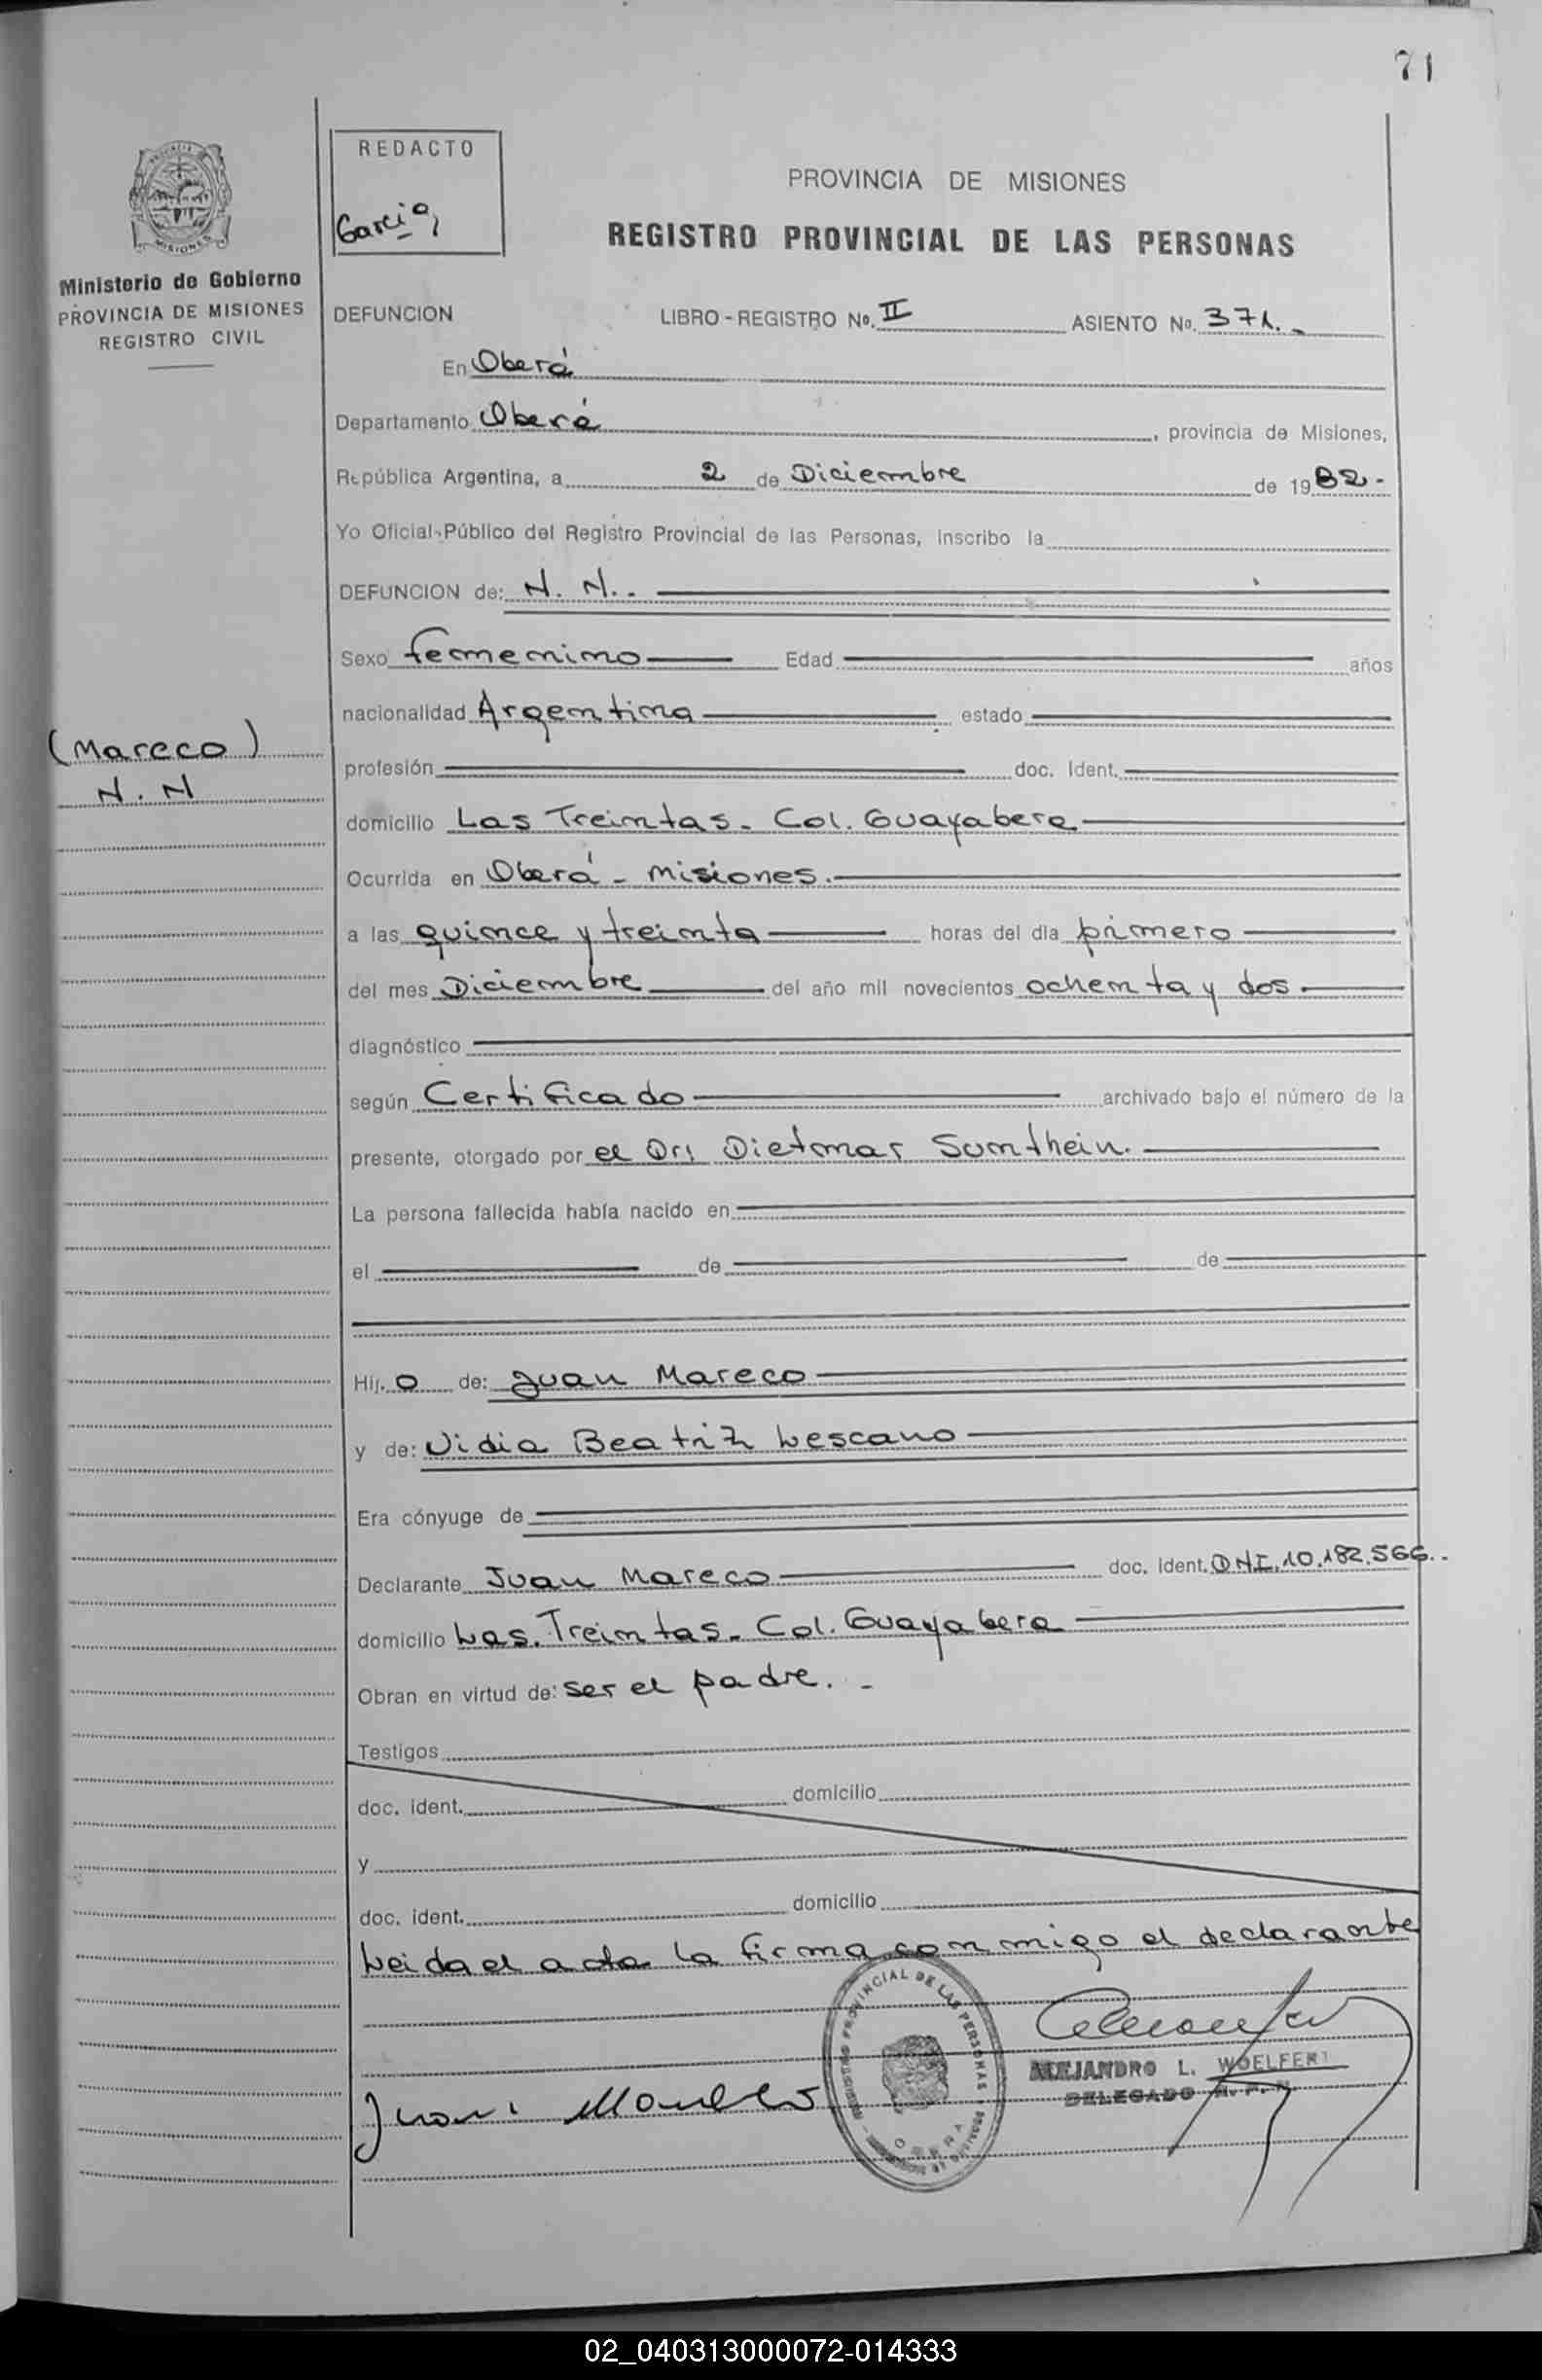 71
REDACTO
Garcia
PROVINCIA DE MISIONES
REGISTRO PROVINCIAL DE LAS PERSONAS
MISIONES
Ministerio de Gobierno
PROVINCIA DE MISIONES
REGISTRO CIVIL
DEFUNCION LIBRO-REGISTRO No. II ASIENTO No. 371.-
En Oberá
Departamento Oberá, provincia de Misiones,
República Argentina, a 2 de Diciembre de 1982.-
Yo Oficial Público del Registro Provincial de las Personas, inscribo la
DEFUNCION de: N. N..-
Sexo femenino Edad años
nacionalidad Argentina estado
(Mareco)
N. N
profesión doc. Ident.
domicilio Las Treintas. Col. Guayabera
Ocurrida en Oberá - Misiones.
a las quince y treinta horas del día primero
del mes Diciembre del año mil novecientos ochenta y dos
diagnóstico
según Certificado archivado bajo el número de la
presente, otorgado por el Dr. Dietmar Sonthein.
La persona fallecida había nacido en
el de de
Hij. o de: Juan Mareco
y de: Nidia Beatriz Lescano
Era cónyuge de
Declarante Juan Mareco doc. ident. DNI. 10.182.566..
domicilio Las. Treintas. Col. Guayabera
Obran en virtud de: ser el padre. -
Testigos
doc. ident. domicilio
y
doc. ident. domicilio
Leida el acta la firma conmigo el declarante
REGISTRO PROVINCIAL DE LAS PERSONAS
OBERA
ALEJANDRO L. WOELFERT
DELEGADO R. P. P.
Juan Mareco
02_040313000072-014333